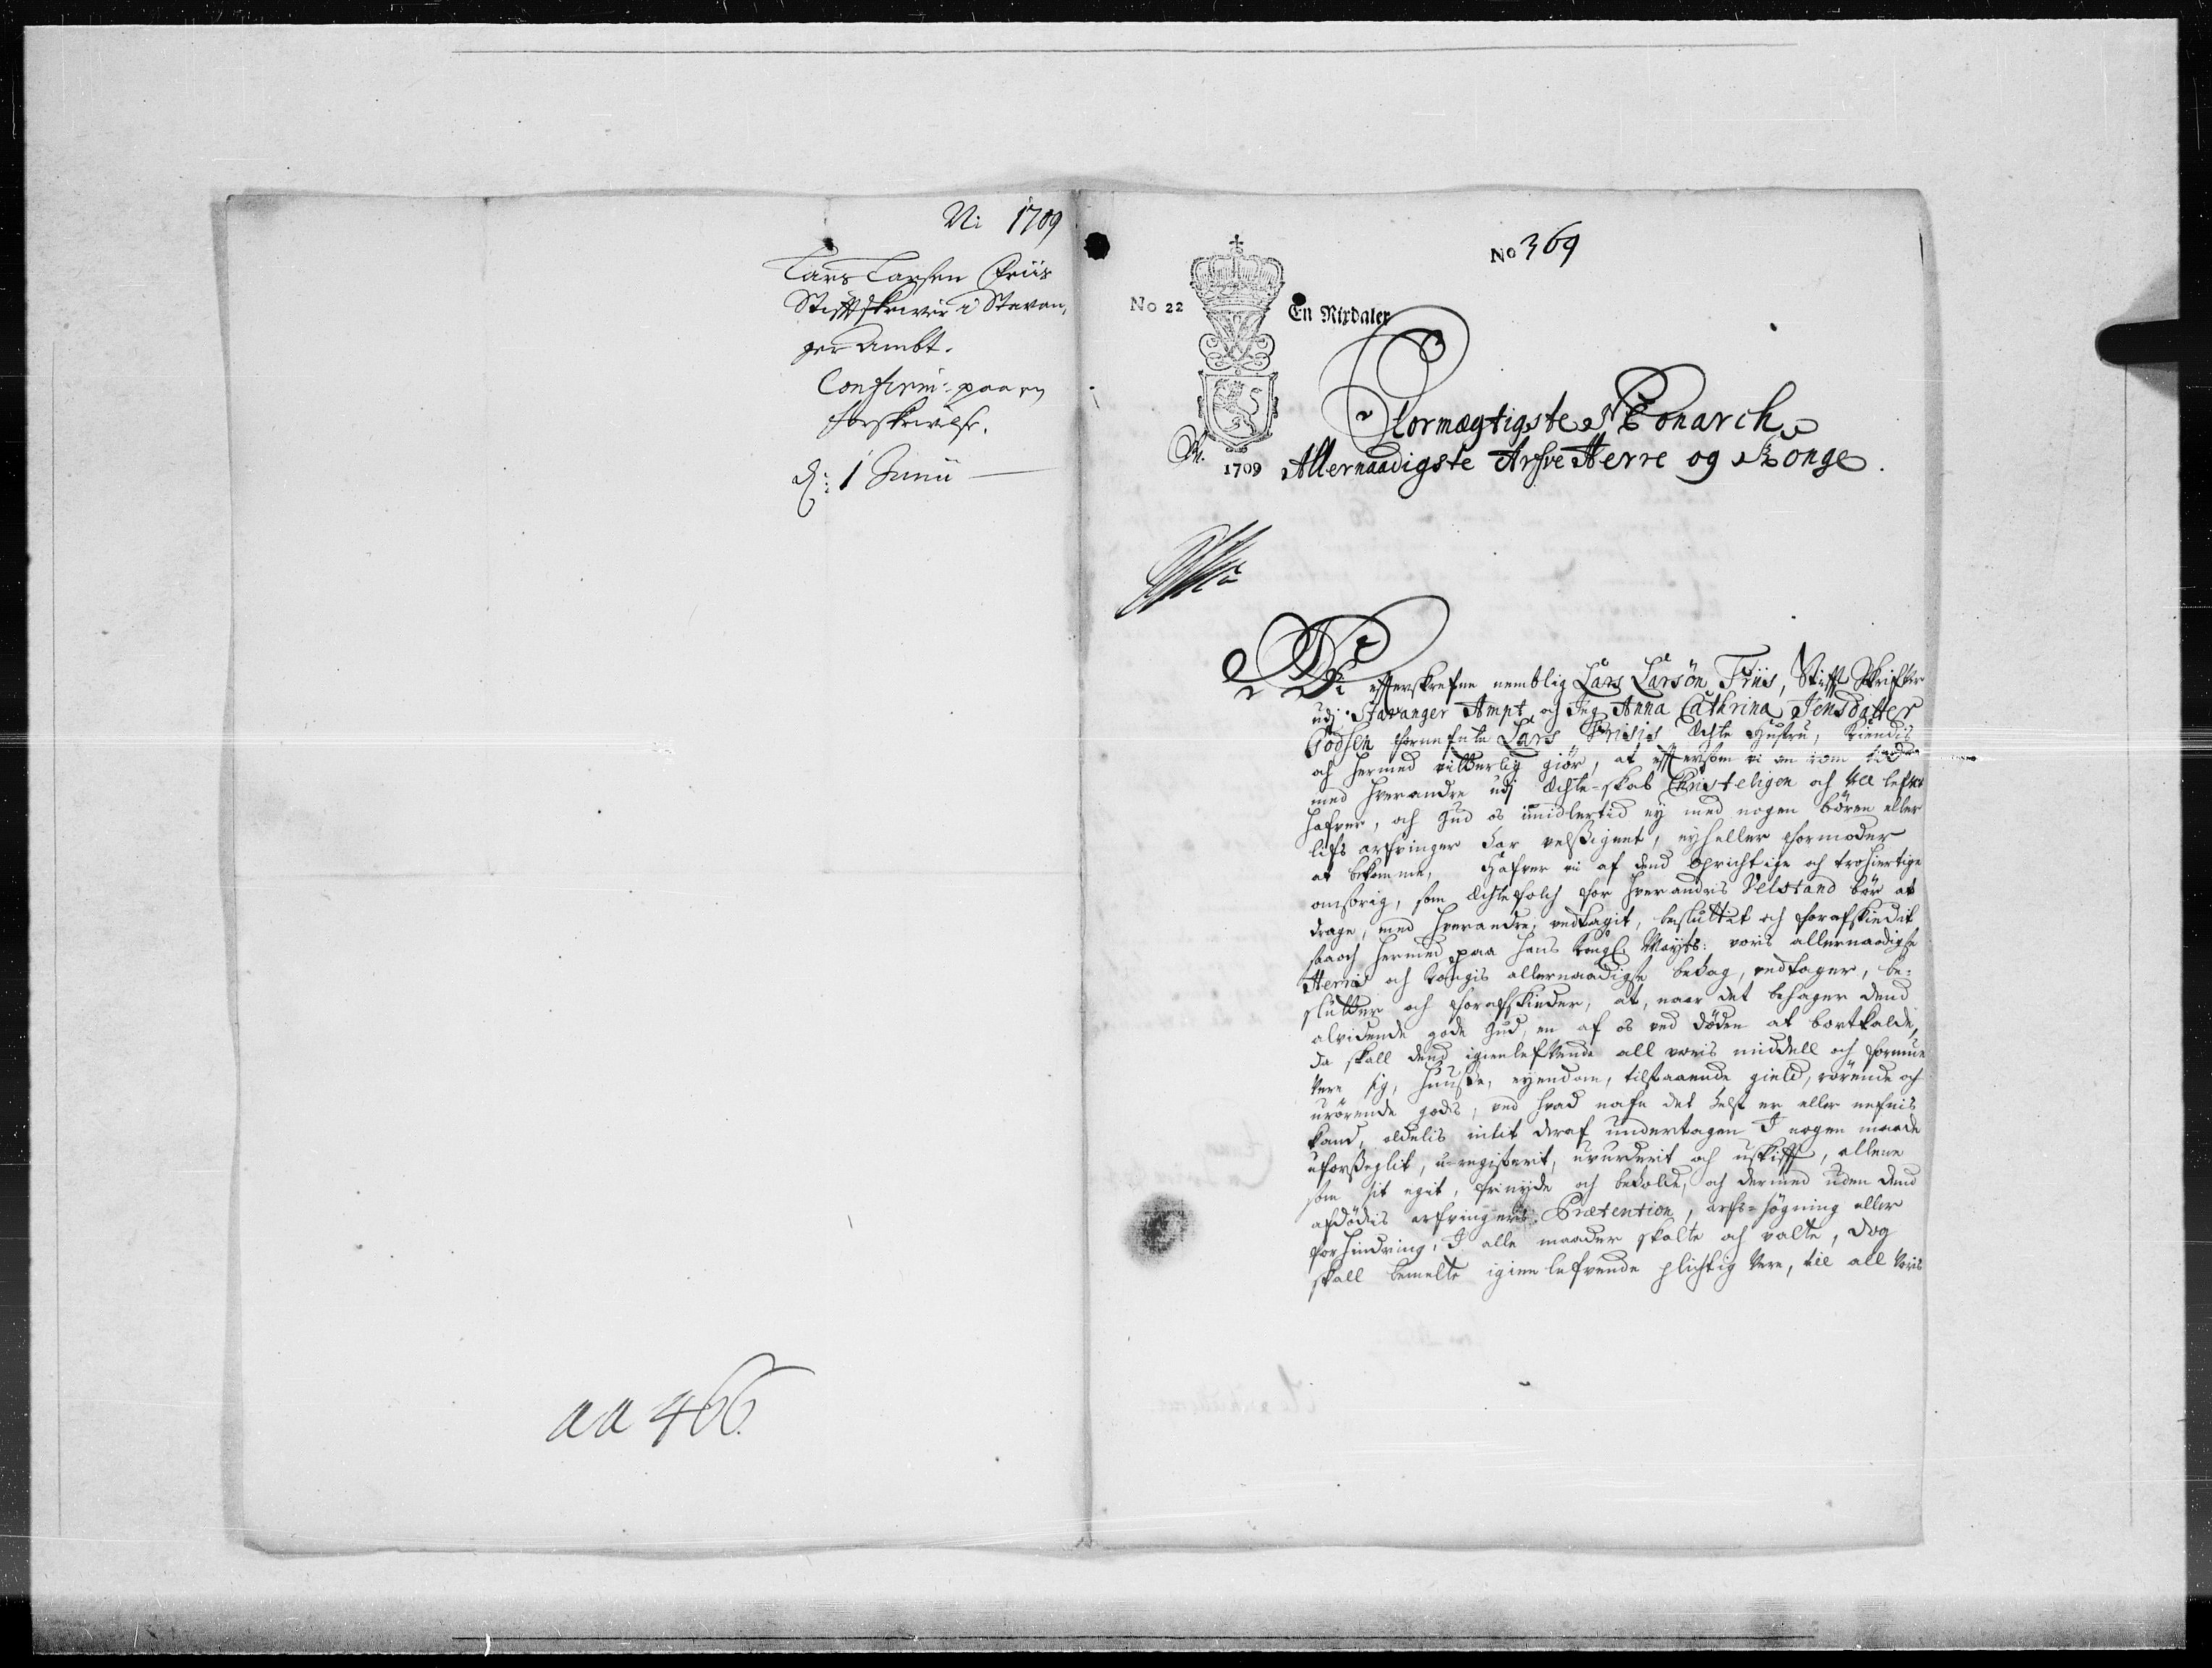 Ni 1709
Lars Larsen Friis
Stifftskriver i Stavan,
ger Ambt.
Confirm: paa en
forskrivelse.
d: 1 Junii
aa 466.
No 369
No 22
En Rixdaler
1709
Stormægtigste Monarch
Allernaadigste Arfve Herre og Konge.
Vi effterskrefne nemblig Lars Larsön Friis, Stifft Skrifver
udj Stavanger Ampt, och Jeg Anna Cathrina Jensdatter
Godsen fornefnte Lars Friisis Echte Hustru, kiendis
och hermed vitterlig giör, at effttersom vi en
med hverandre udj Echte-skab Christeligen och vel lefvet
hafver, och Gud os imidlertid ey med nogen börn eller
lifs arfvinger har velsignet, eyheller formoder
at bekomme, Hafver vi af dend oprichtige och trohiertige
omsorig, som Echtefolch for hver andris Velstand bör at
drage, med hverandre vedtagit, besluttet och forafskiedit
saaoch hermed paa hans Kongl Mayts: voris allernaadigste
Herris och Kongis allernaadigste behag, vedtager, be-
slutter och forafskieder, at, naar det behager dend
alvidende gode Gud, en af os ved döden at bortkalde,
da skall dend igienlefvende all voris middell och formue
Vere sig, huusse, eyendom, tilstaaende gield, rörende och
urörende gods, ved hvad nafn det helst er eller nefnis
kand, aldelis intit deraf undertagen I nogen maade
uforseglit, u-registerit, uvurderit och uskifft, allene
som sit egit, frinyde och beholde, och dermed uden dend
afdödis arfvingers Prætention, arfs-sögning eller
forhindring, I alle maader skalte och valte, dog
skall bemelte igienlefvende plichtig Vere, till all Voris